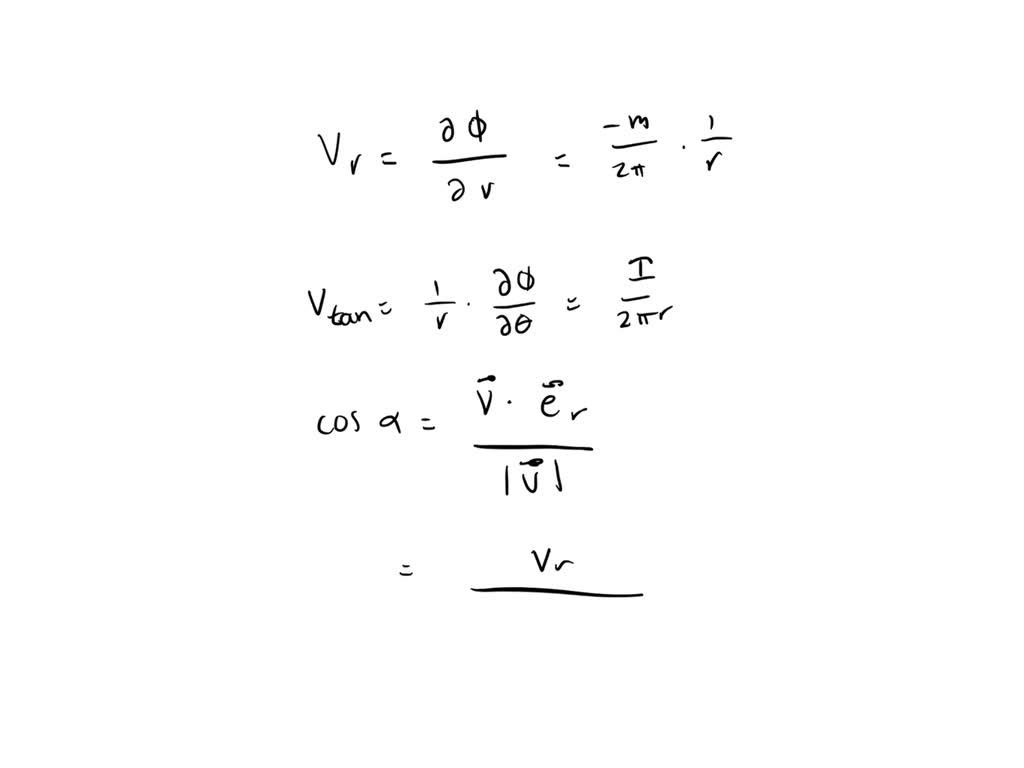 V_r = ∂ϕ/∂r = -m/2π · 1/r
V_tan = 1/r · ∂ϕ/∂θ = I/2πr
cos α = v⃗ · e⃗_r / |v⃗|
= V_r